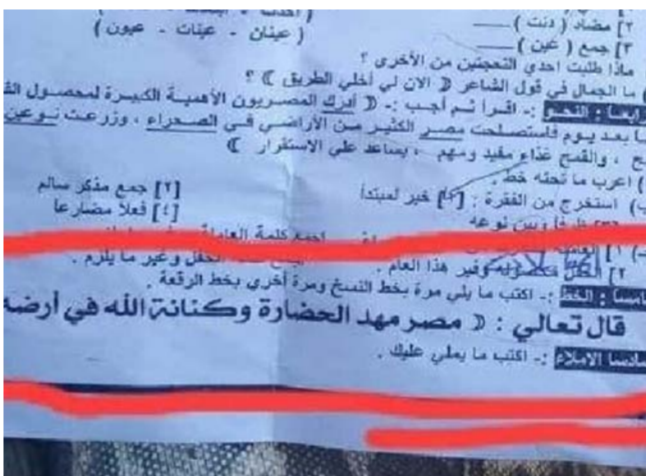 ٢] مضاد ( دنت )
( عينان - عينات - عيون )
٣] جمع ( عين )
ماذا طلبت احدي النعجتين من الأخرى ؟
ما الجمال في قول الشاعر (( الان لي أخلي الطريق )) ؟
رابعا : النحو :- اقرأ ثم أجب :- (( أدرك المصريون الأهمية الكبيرة لمحصول
بعد يوم فاستصلحت مصر الكثير من الأراضي في الصحراء ، وزرعت نوعين
، والقمح غذاء مفيد ومهم ، يساعد علي الاستقرار ))
) اعرب ما تحته خط .
ب) استخرج من الفقرة : [١] خبر لمبتدأ
[٢] جمع مذكر سالم
وبين نوعه
[٤] فعلا مضارعا
اجمع كلمة
٢] الحقل محصوله وفير هذا العام .
الحقل وغير ما يلزم .
خامسا : الخط :- اكتب ما يلي مرة بخط النسخ ومرة أخري بخط الرقعة .
قال تعالي : (( مصر مهد الحضارة وكنانة الله في أرضه
سادسا الاملاء :- اكتب ما يملي عليك .